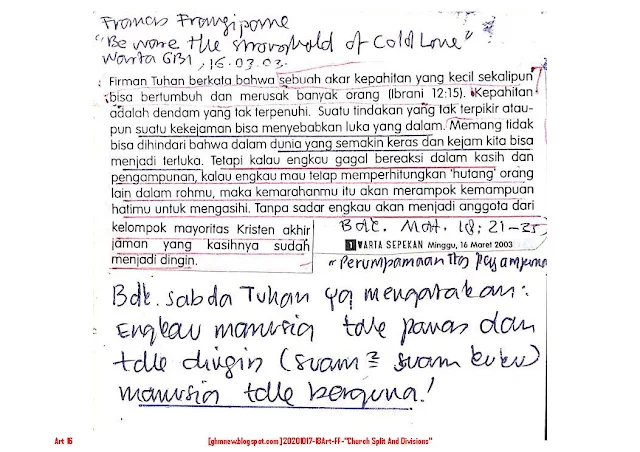 Francis Frangipane
"Beware the stronghold of Cold Love"
Warta GBI, 16.03.03.
Firman Tuhan berkata bahwa sebuah akar kepahitan yang kecil sekalipun
bisa bertumbuh dan merusak banyak orang (Ibrani 12:15). Kepahitan
adalah dendam yang tak terpenuhi. Suatu tindakan yang tak terpikir atau-
pun suatu kekejaman bisa menyebabkan luka yang dalam. Memang tidak
bisa dihindari bahwa dalam dunia yang semakin keras dan kejam kita bisa
menjadi terluka. Tetapi kalau engkau gagal bereaksi dalam kasih dan
pengampunan, kalau engkau mau tetap memperhitungkan 'hutang' orang
lain dalam rohmu, maka kemarahanmu itu akan merampok kemampuan
hatimu untuk mengasihi. Tanpa sadar engkau akan menjadi anggota dari
kelompok mayoritas Kristen akhir
jaman yang kasihnya sudah
menjadi dingin.
Bdk. Mat. 18: 21-35
1 WARTA SEPEKAN Minggu, 16 Maret 2003
"Perumpamaan ttg
Bdk. sabda Tuhan yg mengatakan:
Engkau manusia tdk panas dan
tdk dingin (suam2 suam kuku)
manusia tdk berguna!
Art 16
[ghmnew.blogspot.com]20201017-18Art-FF-"Church Split And Divisions"